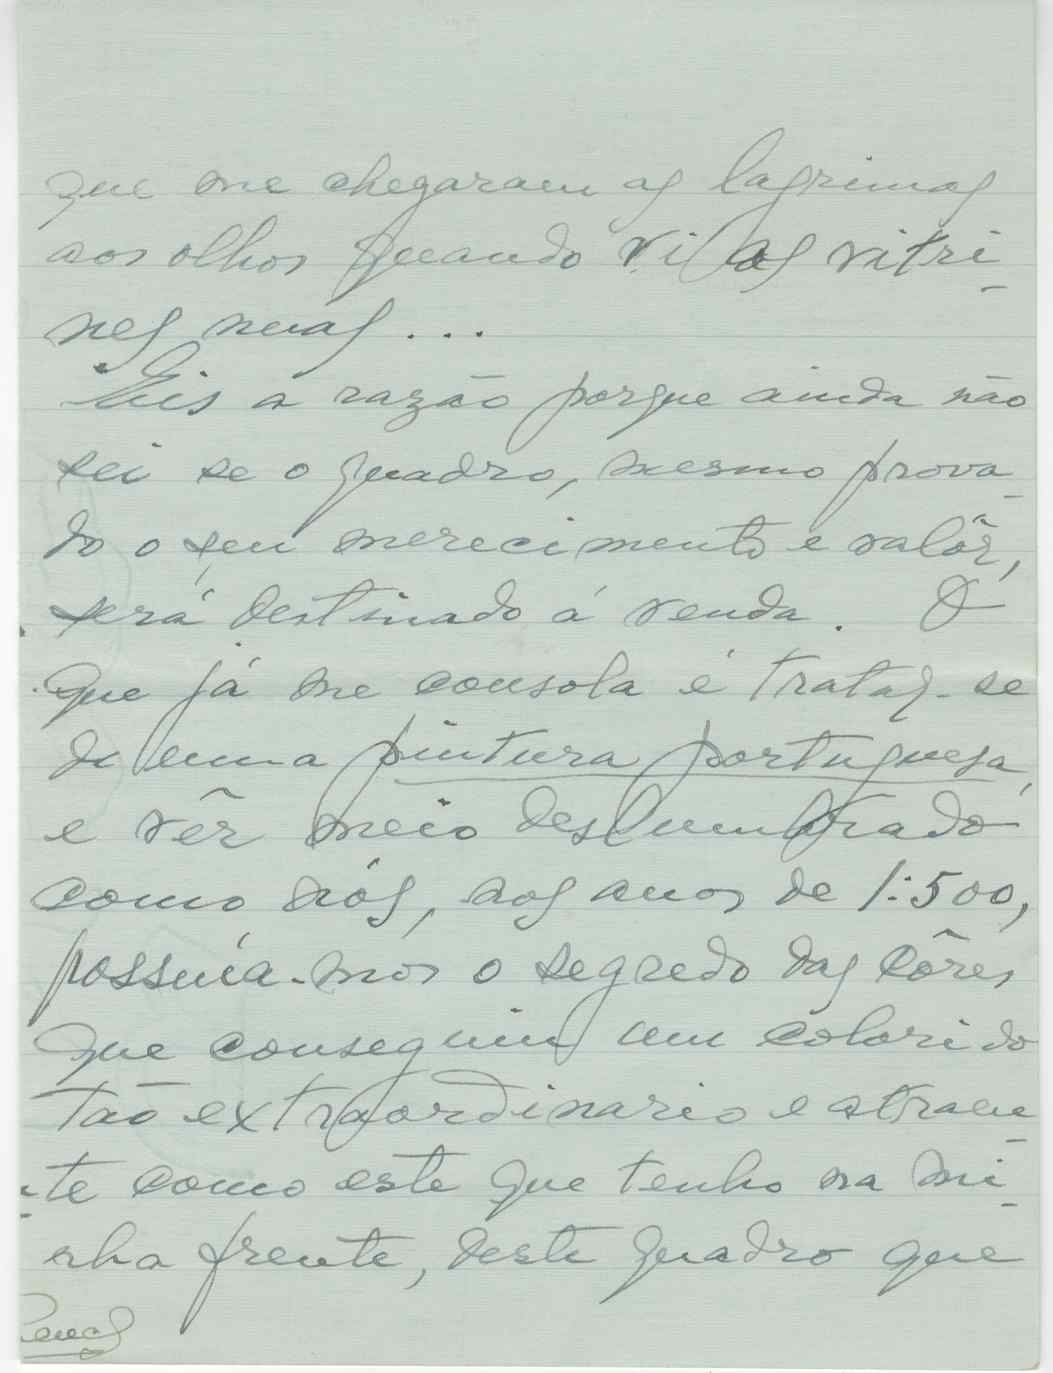 que me chegaram as lagrimas
aos olhos quando vi as vitri-
nes nuas ...
Eis a razão porque ainda não
sei se o quadro, mesmo prova-
do o seu merecimento e valôr,
será destinado á venda. O
que já me consola é tratar-se
de uma pintura portuguesa,
e vêr meio deslumbrado
como nós, aos anos de 1:500,
possuía-mos o segredo das côres
que conseguiu um colorido
tão extraordinario e atraen-
-te como este que tenho na mi-
nha frente, deste quadro que